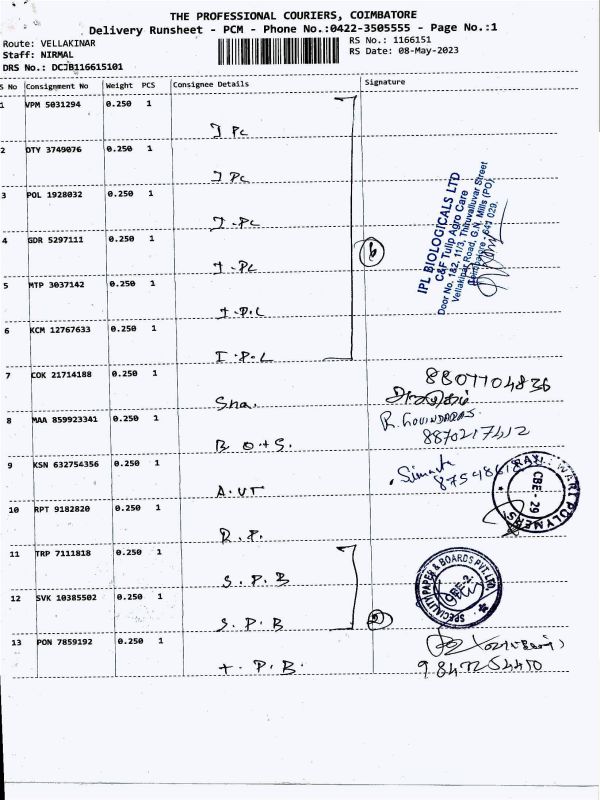 THE PROFESSIONAL COURIERS, COIMBATORE
Delivery Runsheet - PCM - Phone No.:0422-3505555 - Page No.:1
Route: VELLAKINAR
RS No.: 1166151
Staff: NIRMAL
RS Date: 08-May-2023
DRS No.: DCJB116615101
S No Consignment No Weight PCS Consignee Details Signature
1 VPM 5031294 0.250 1
I PC
2 DTY 3749076 0.250 1
I PC
3 POL 1928032 0.250 1
I.PL
4 GDR 5297111 0.250 1
I.PL
5 MTP 3037142 0.250 1
I.P.L
6 KCM 12767633 0.250 1
I.P.L
6
IPL BIOLOGICALS LTD
C&F Tulip Agro Care
Door No. 1&2, 11/3, Thiruvalluvar Street
Vellakinar Road, G.N. Mills (PO),
Coimbatore - 641 029.
7 COK 21714188 0.250 1
8807704836
Sna.
8 MAA 859923341 0.250 1
R. GOVINDARAJ.
8870217412
B O+S.
9 KSN 632754356 0.250 1
A.VT
10 RPT 9182820 0.250 1
POLYMERS
CBE - 29
R.P.
11 TRP 7111818 0.250 1
S.P.B
12 SVK 10385502 0.250 1
SPECIALITY PAPER & BOARDS PVT. LTD.
CBE-2
S.P.B
13 PON 7859192 0.250 1
9847254450
T.P.B.